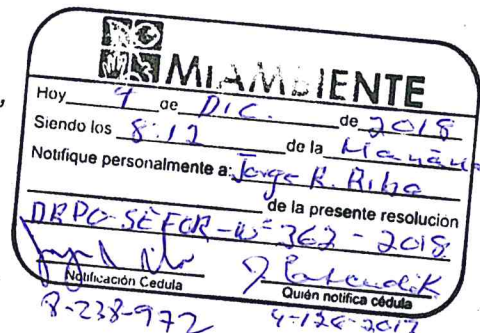 MIAMBIENTE
Hoy 9 de DIC. de 2018
Siendo los 8:12 de la Mañana
Notifique personalmente a: Jorge R. Riba
de la presente resolución
DRPO-SEFOR-Nº 362-2018
Notificación Cedula
Quién notifica cédula
8-238-972